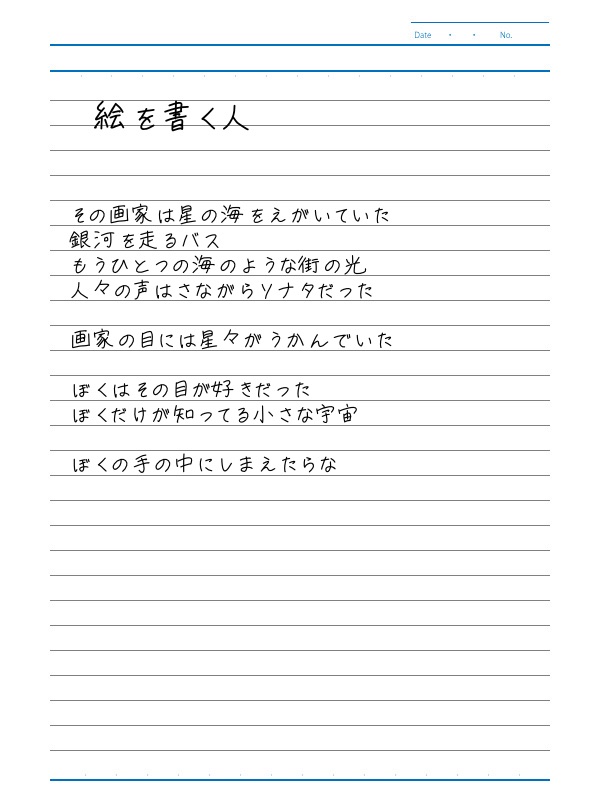 Date ・ ・ No.
絵を書く人
その画家は星の海をえがいていた
銀河を走るバス
もうひとつの海のような街の光
人々の声はさながらソナタだった
画家の目には星々がうかんでいた
ぼくはその目が好きだった
ぼくだけが知ってる小さな宇宙
ぼくの手の中にしまえたらな